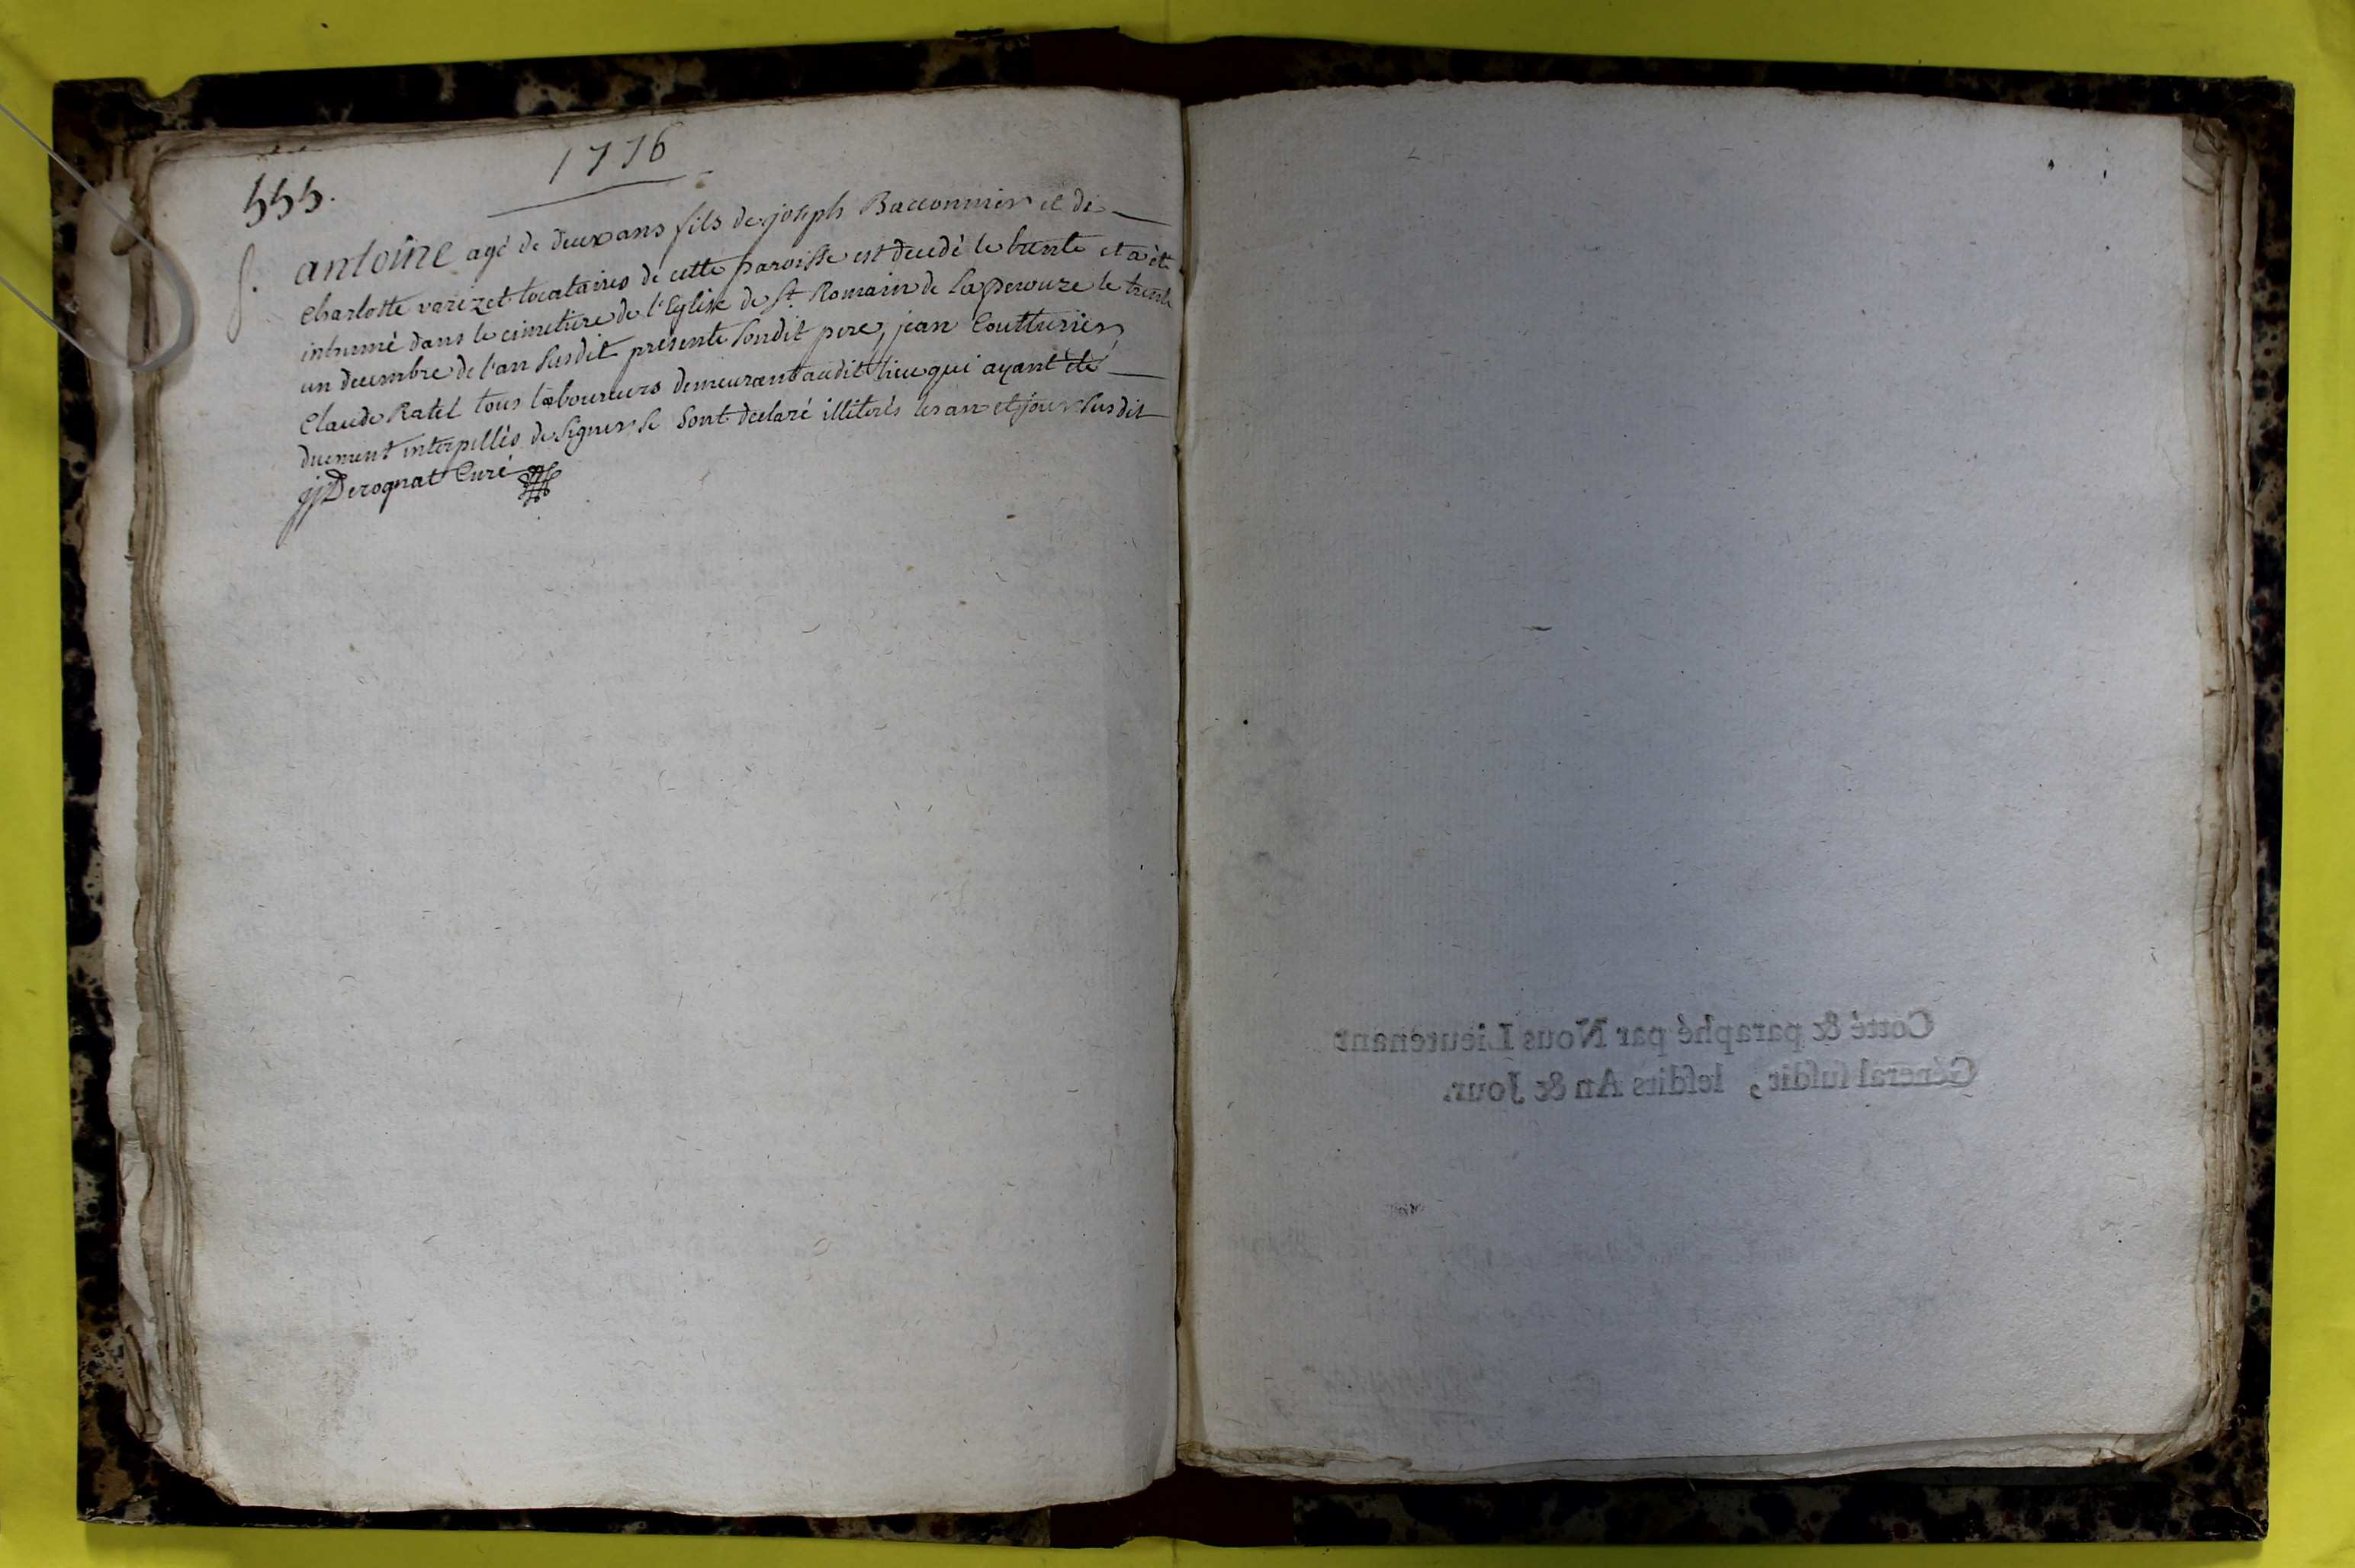 1776
555.
S. antoine agé de deux ans fils de joseph Bacconnier et de
Charlotte varizet locataires de cette paroisse est decedé le trente et a èté
inhumé dans le cimetiere de l'Eglise de St. Romain de Laperouze le trente
un decembre de l'an susdit presents sondit pere, jean Coutturier,
Claude Ratel tous laboureurs demeurant audit lieu qui ayant été
duement interpellés de signer se sont declaré illiterés les an et jour susdit
jjDerognat Curé
Cotté & paraphé par Nous Lieutenant
Général susdit, lesdits An & Jour.